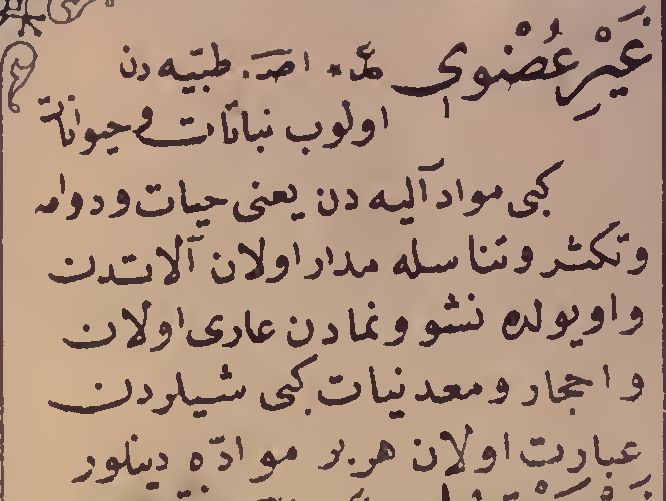 غَيْرِ عُضْوِي عد٠ اصـ. طبّيه دن
اولوب نباتات و حيوانات
كبى مواد آليه دن يعنى حيات و دوامه
و تكثر و تناسله مدار اولان آلاتدن
و او يولده نشو و نمادن عارى اولان
و احجار و معدنيات كبى شيلردن
عبارت اولان هر بر موادّه دينلور